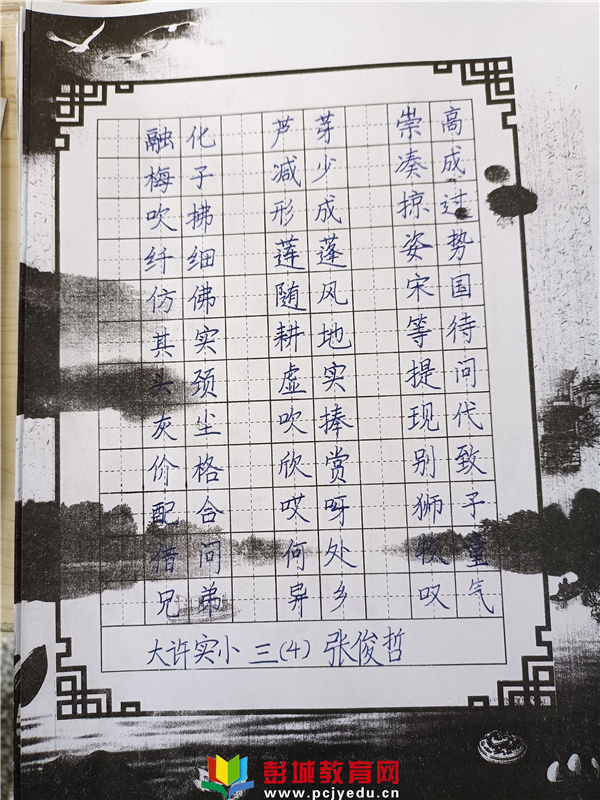 融化 芦芽 崇高
梅子 减少 凑成
吹拂 形成 掠过
纤细 莲蓬 姿势
仿佛 随风 宋国
其实 耕地 等待
头颈 虚实 提问
灰尘 吹捧 现代
价格 欣赏 别致
配合 哎呀 狮子
借问 何处 牧童
兄弟 异乡 叹气
大许实小 三(4) 张俊哲
彭城教育网
www.pcjyedu.cn